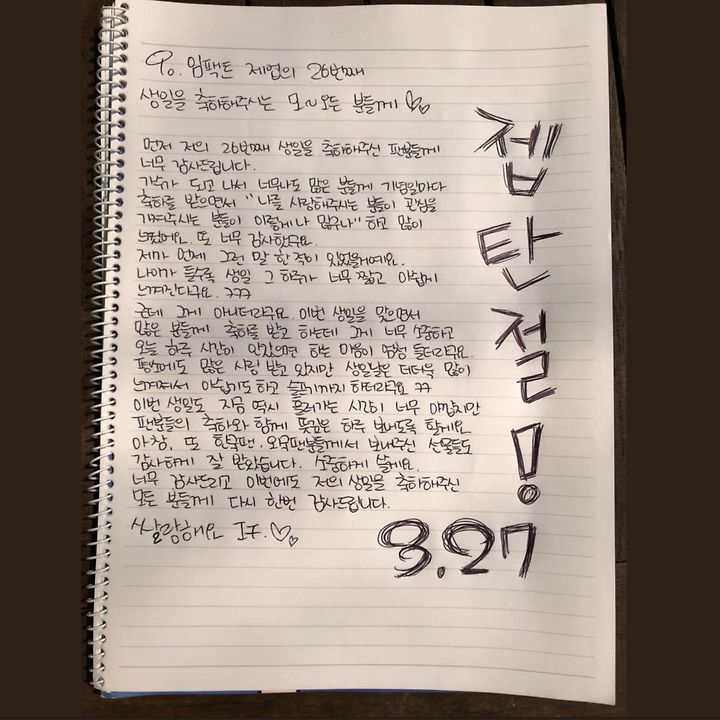 To. 임팩트 제업의 26번째
생일을 축하해주시는 모~오든 분들께 ♡♡
먼저 저의 26번째 생일을 축하해주신 팬분들께
너무 감사드립니다.
가수가 되고 나서 너무나도 많은 분들께 기념일마다
축하를 받으면서 "나를 사랑해주시는 분들이 관심을
가져주시는 분들이 이렇게나 많구나" 하고 많이
느꼈어요. 또 너무 감사했구요.
제가 언제 그런 말 한 적이 있었을거에요.
나이가 들수록 생일 그 하루가 너무 짧고 아쉽게
느껴진다구요. ㅋㅋㅋ
근데 그게 아니더라구요. 이번 생일을 맞으면서
많은 분들께 축하를 받고 하는데 그게 너무 소중하고
오늘 하루 시간이 안갔으면 하는 마음이 엄청 들더라구요.
평소에도 많은 사랑 받고 있지만 생일날은 더더욱 많이
느껴져서 아쉽기도 하고 슬프기까지 하더라구요 ㅋㅋ
이번 생일도 지금 역시 흘러가는 시간이 너무 아깝지만
팬분들의 축하와 함께 뜻깊은 하루 보내도록 할게요.
아참, 또 한국팬, 외국팬분들께서 보내주신 선물들도
감사하게 잘 받았습니다. 소중하게 쓸게요.
너무 감사드리고 이번에도 저의 생일을 축하해주신
모든 분들께 다시 한번 감사드립니다.
싸랑해요 IF.♡♡
젭
탄
절
!
3.27